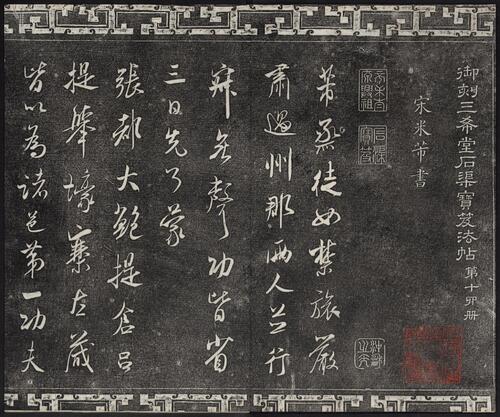 御刻三希堂石渠寶笈法帖 第十四冊
宋米芾書
芾烝徒如禁旅嚴
肅過州郡兩人並行
寂無聲功皆省
三日先了蒙
張都大鮑提倉呂
提舉壕寨左藏
皆以為諸邑第一功夫